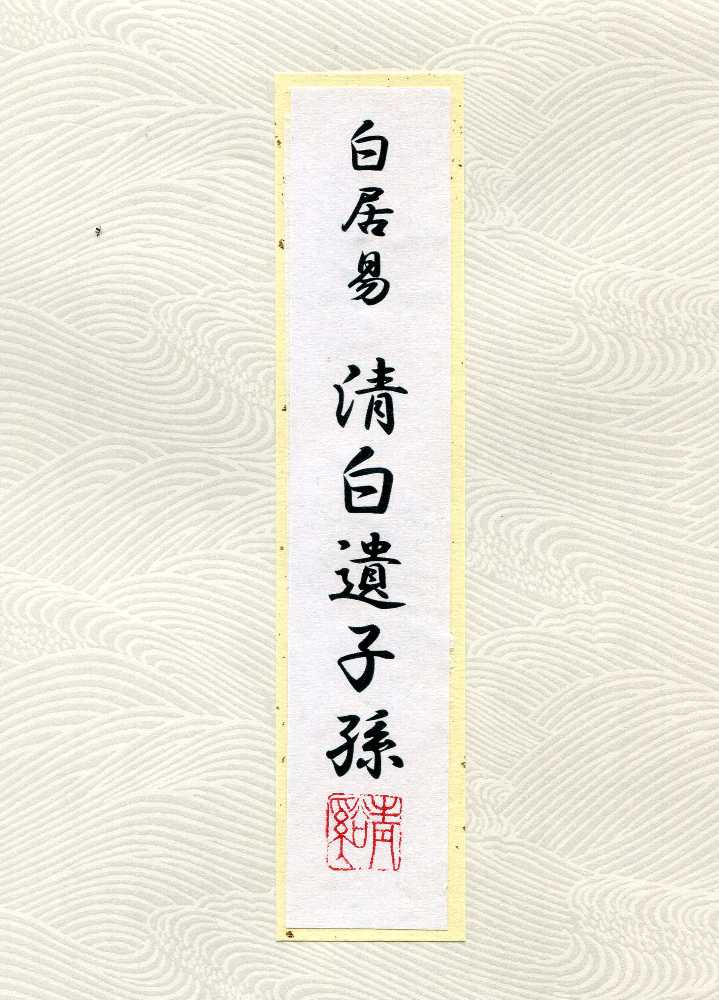 白居易 清白遺子孫
清谿